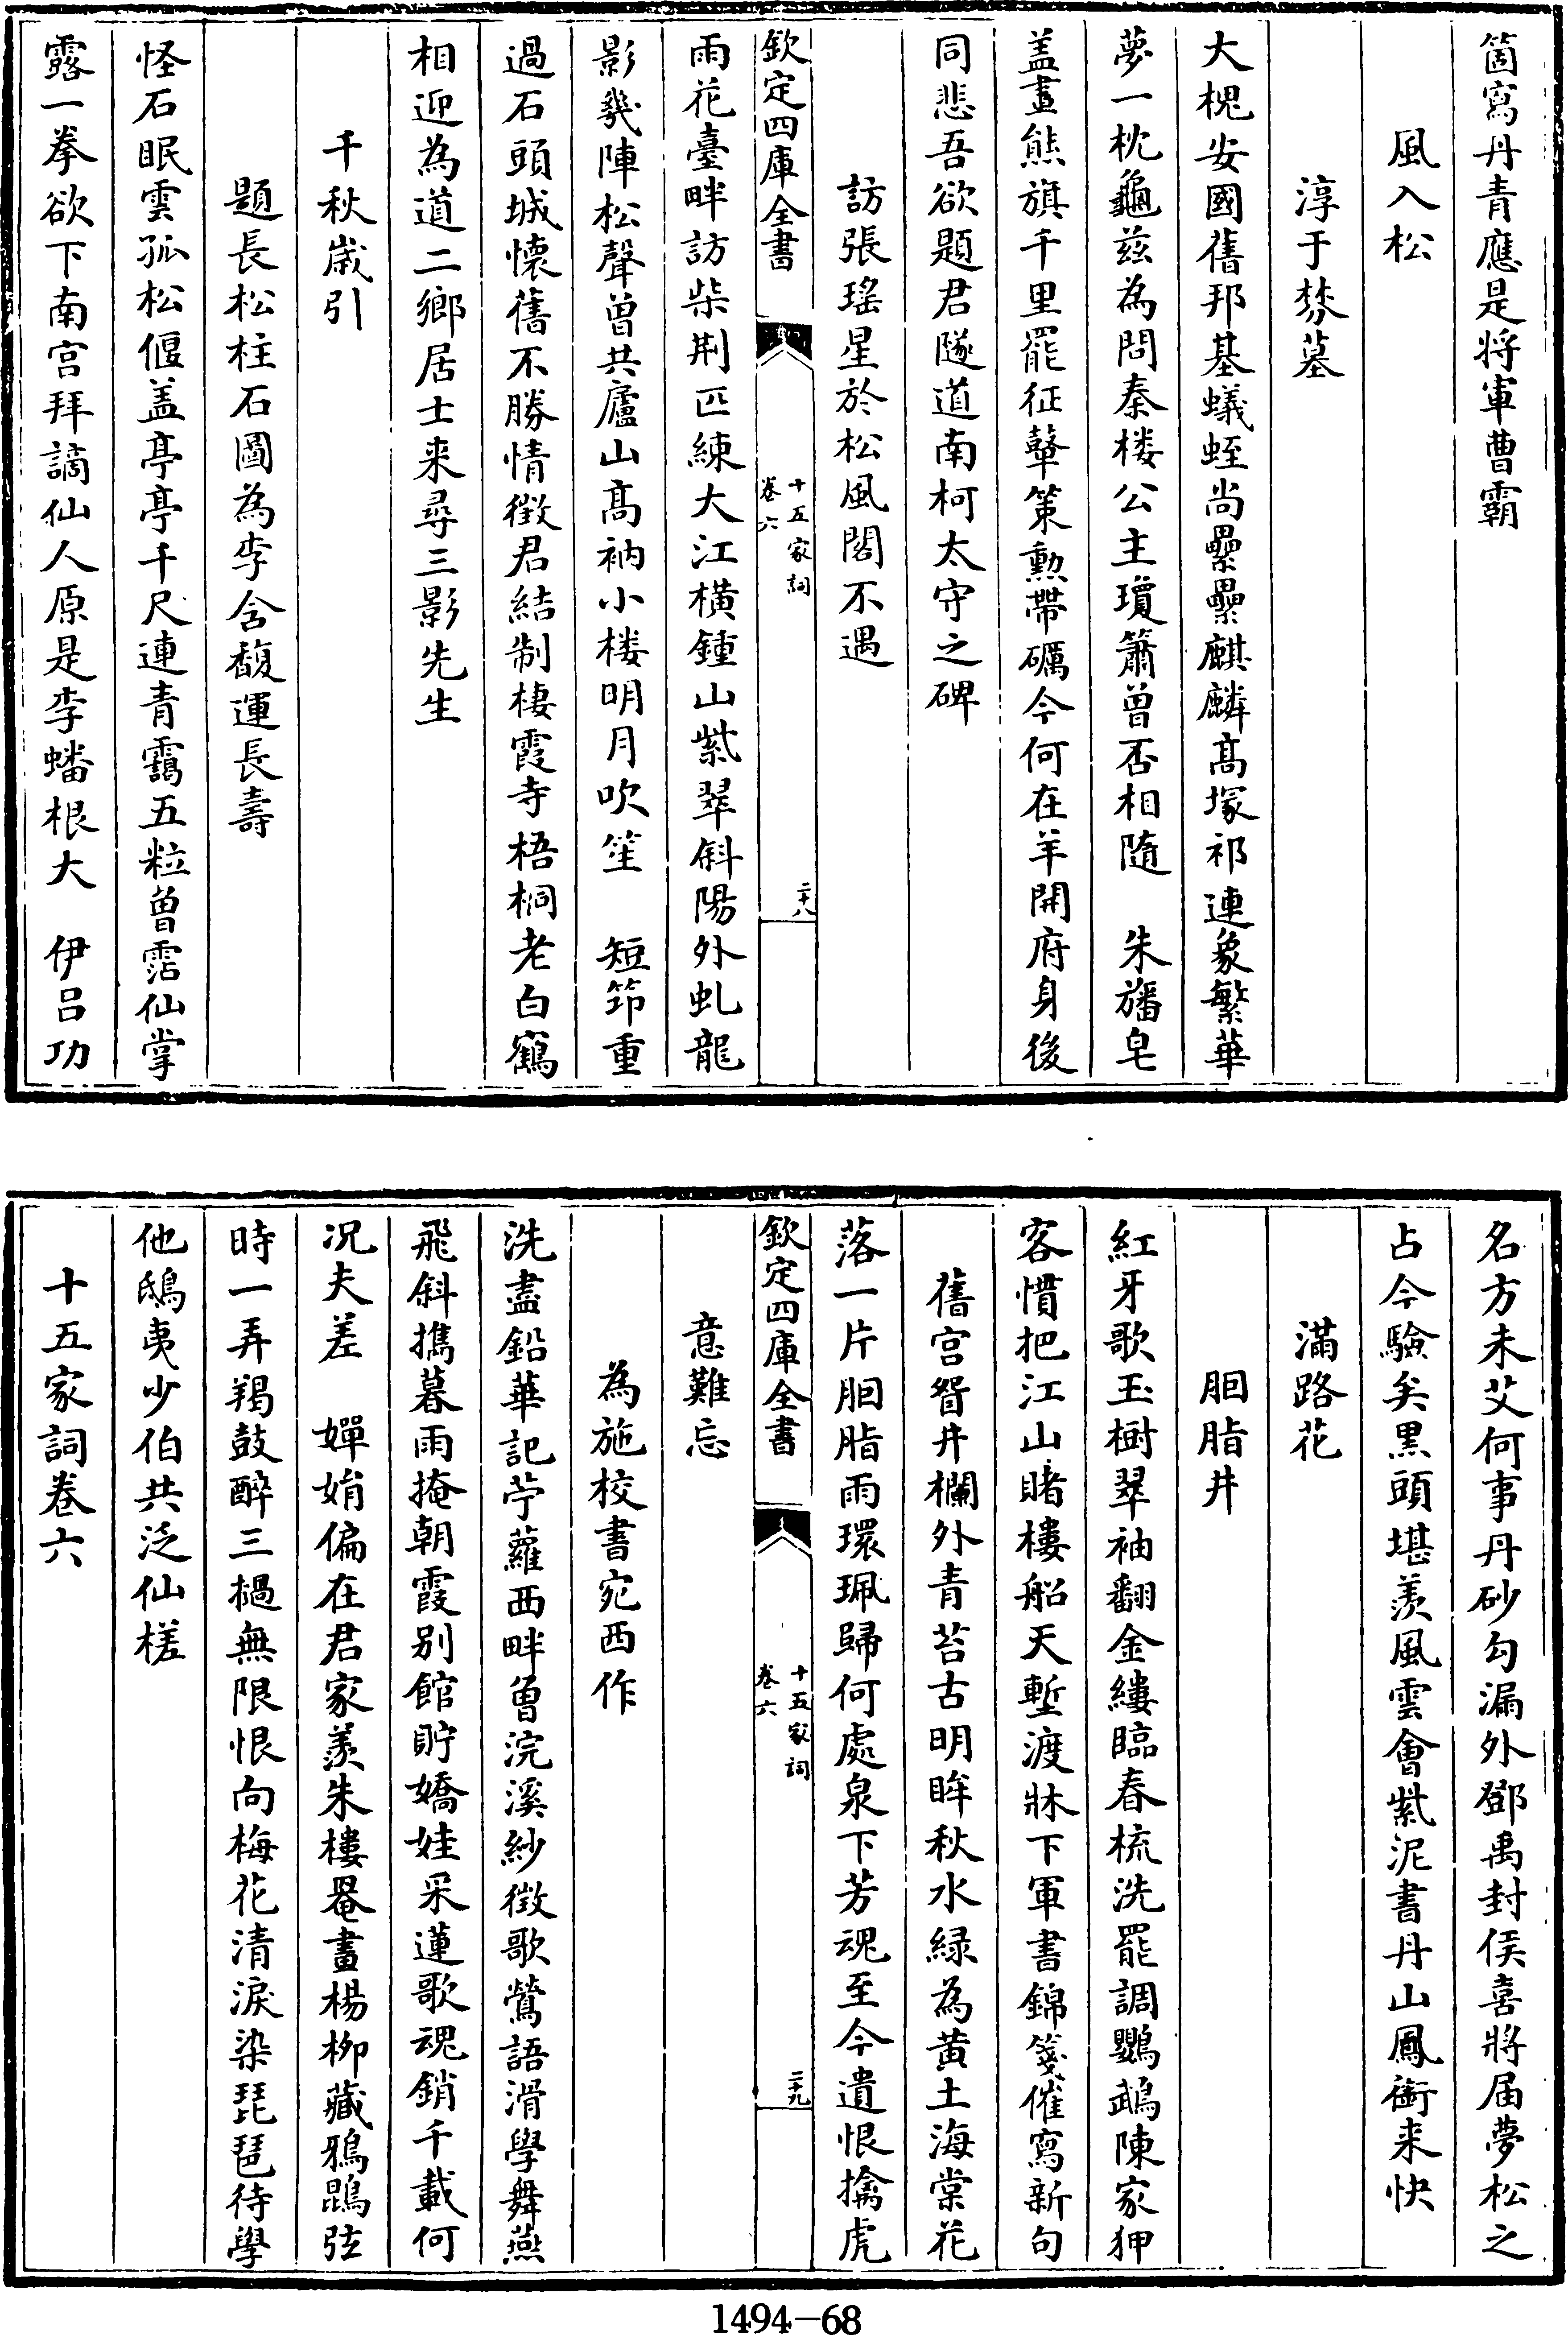 箇寫丹青應是將軍曹霸
風入松
淳于棼墓
大槐安國舊邦基蟻蛭尚纍纍麒麟髙塚祁連象繁華
夢一枕龜兹為問秦楼公主瓊簫曾否相隨　朱旛皂
盖畫熊旗千里罷征鼙策勲帶礪今何在羊開府身後
同悲吾欲題君隧道南柯太守之碑
訪張瑤星於松風閣不遇
欽定四庫全書
十五家詞
卷六
二十八
雨花臺畔訪柴荆匹練大江横鍾山紫翠斜陽外虬龍
影幾陣松聲曾共廬山髙衲小楼明月吹笙　短笻重
過石頭城懷舊不勝情徵君結制棲霞寺梧桐老白鶴
相迎為道二鄉居士来尋三影先生
千秋嵗引
題長松柱石圖為李含馥運長壽
怪石眠雲孤松偃盖亭亭千尺連青靄五粒曾霑仙掌
露一拳欲下南宫拜謫仙人原是李蟠根大　伊吕功
名方未艾何事丹砂勾漏外鄧禹封侯喜將屆夢松之
占今驗矣黒頭堪羡風雲會紫泥書丹山鳳銜来快
滿路花
胭脂井
紅牙歌玉樹翠袖翻金縷臨春梳洗罷調鸚鵡陳家狎
客慣把江山賭樓船天塹渡牀下軍書錦箋催寫新句
舊宫眢井欄外青苔古明眸秋水緑為黄土海棠花
落一片胭脂雨環珮歸何處泉下芳魂至今遺恨擒虎
欽定四庫全書
十五家詞
卷六
二十九
意難忘
為施校書宛西作
洗盡鉛華記苧蘿西畔曾浣溪紗徴歌鶯語滑學舞燕
飛斜攜暮雨掩朝霞别館貯嬌娃采蓮歌魂銷千載何
况夫差　嬋娟偏在君家羡朱樓罨畫楊栁藏鴉鵾弦
時一弄羯鼓醉三檛無限恨向梅花清淚染琵琶待學
他鴟夷少伯共泛仙槎
十五家詞卷六
1494-68